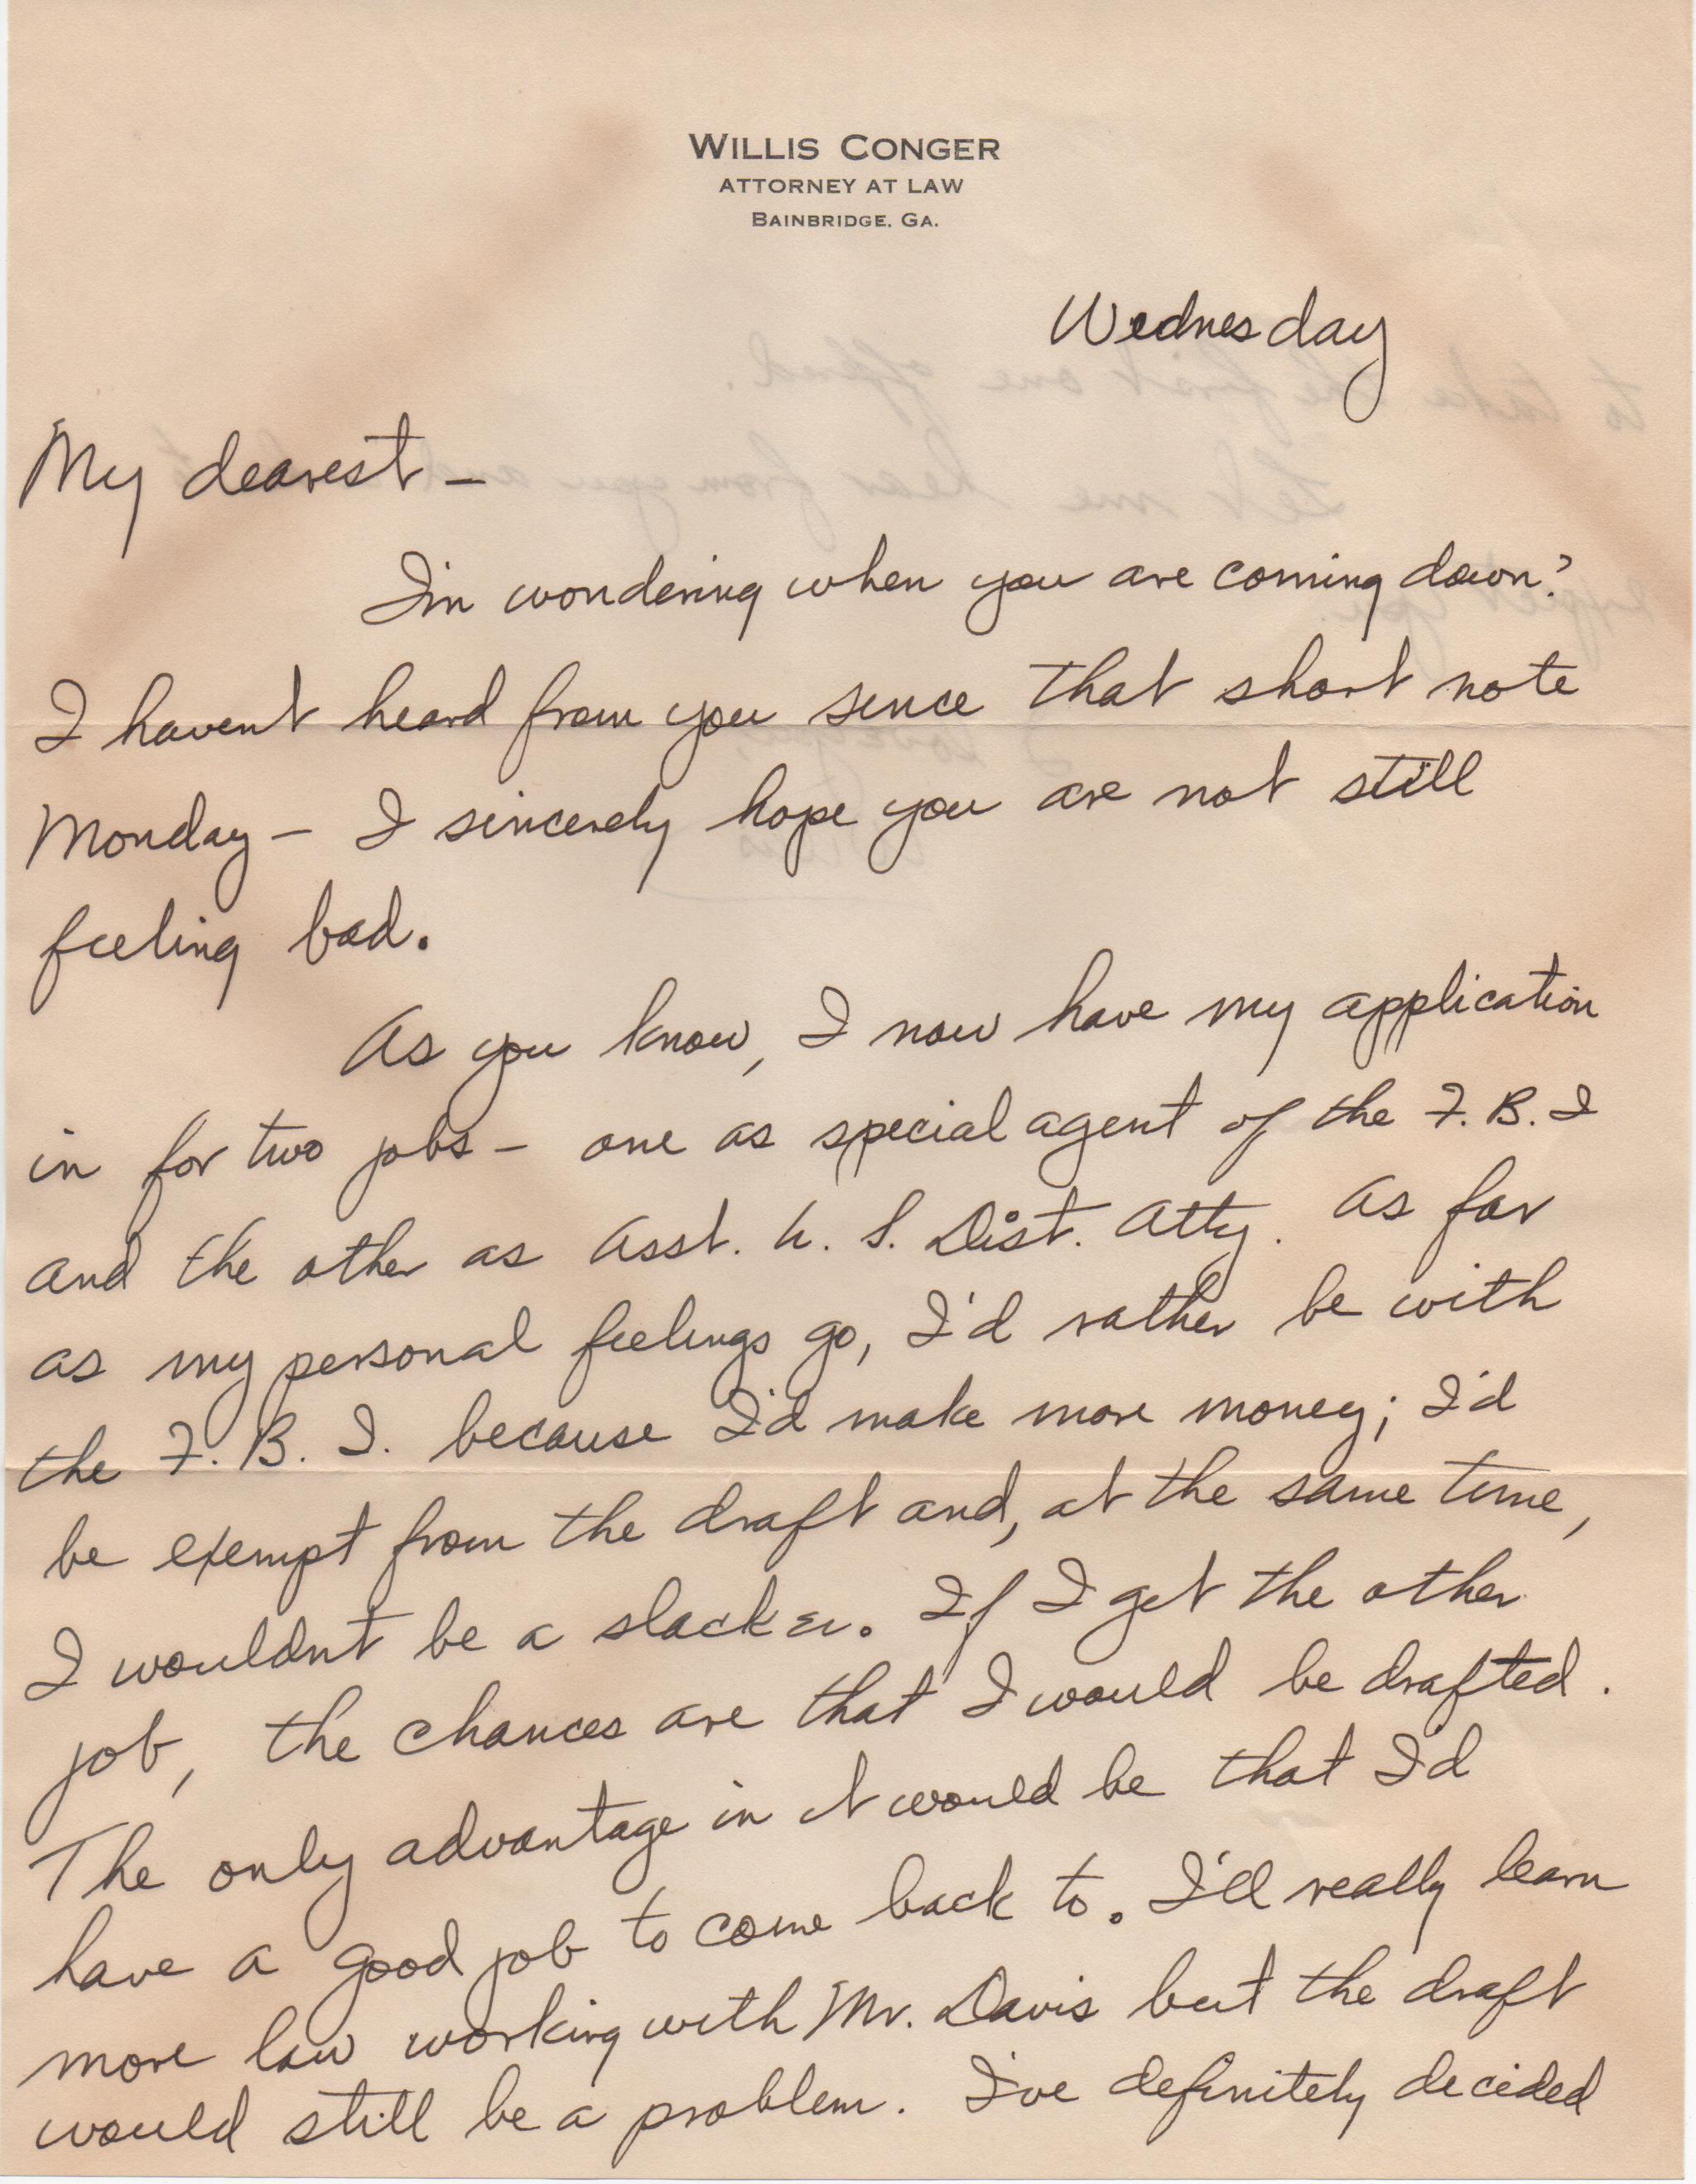 WILLIS CONGER
ATTORNEY AT LAW
BAINBRIDGE, GA.
Wednesday
My dearest –
I'm wondering when you are coming down?
I havent heard from you since that short note
Monday – I sincerely hope you are not still
feeling bad.
As you know, I now have my application
in for two jobs – one as special agent of the F. B. I
and the other as Asst. U. S. Dist. Atty. As far
as my personal feelings go, I'd rather be with
the F. B. I. because I'd make more money; I'd
be exempt from the draft and, at the same time,
I wouldnt be a slacker. If I get the other
job, the chances are that I would be drafted.
The only advantage in it would be that I'd
have a good job to come back to. I'll really learn
more law working with Mr. Davis but the draft
would still be a problem. I've definitely decided
to take the first one offered.
Let me hear from you and
expect you.
I love you,